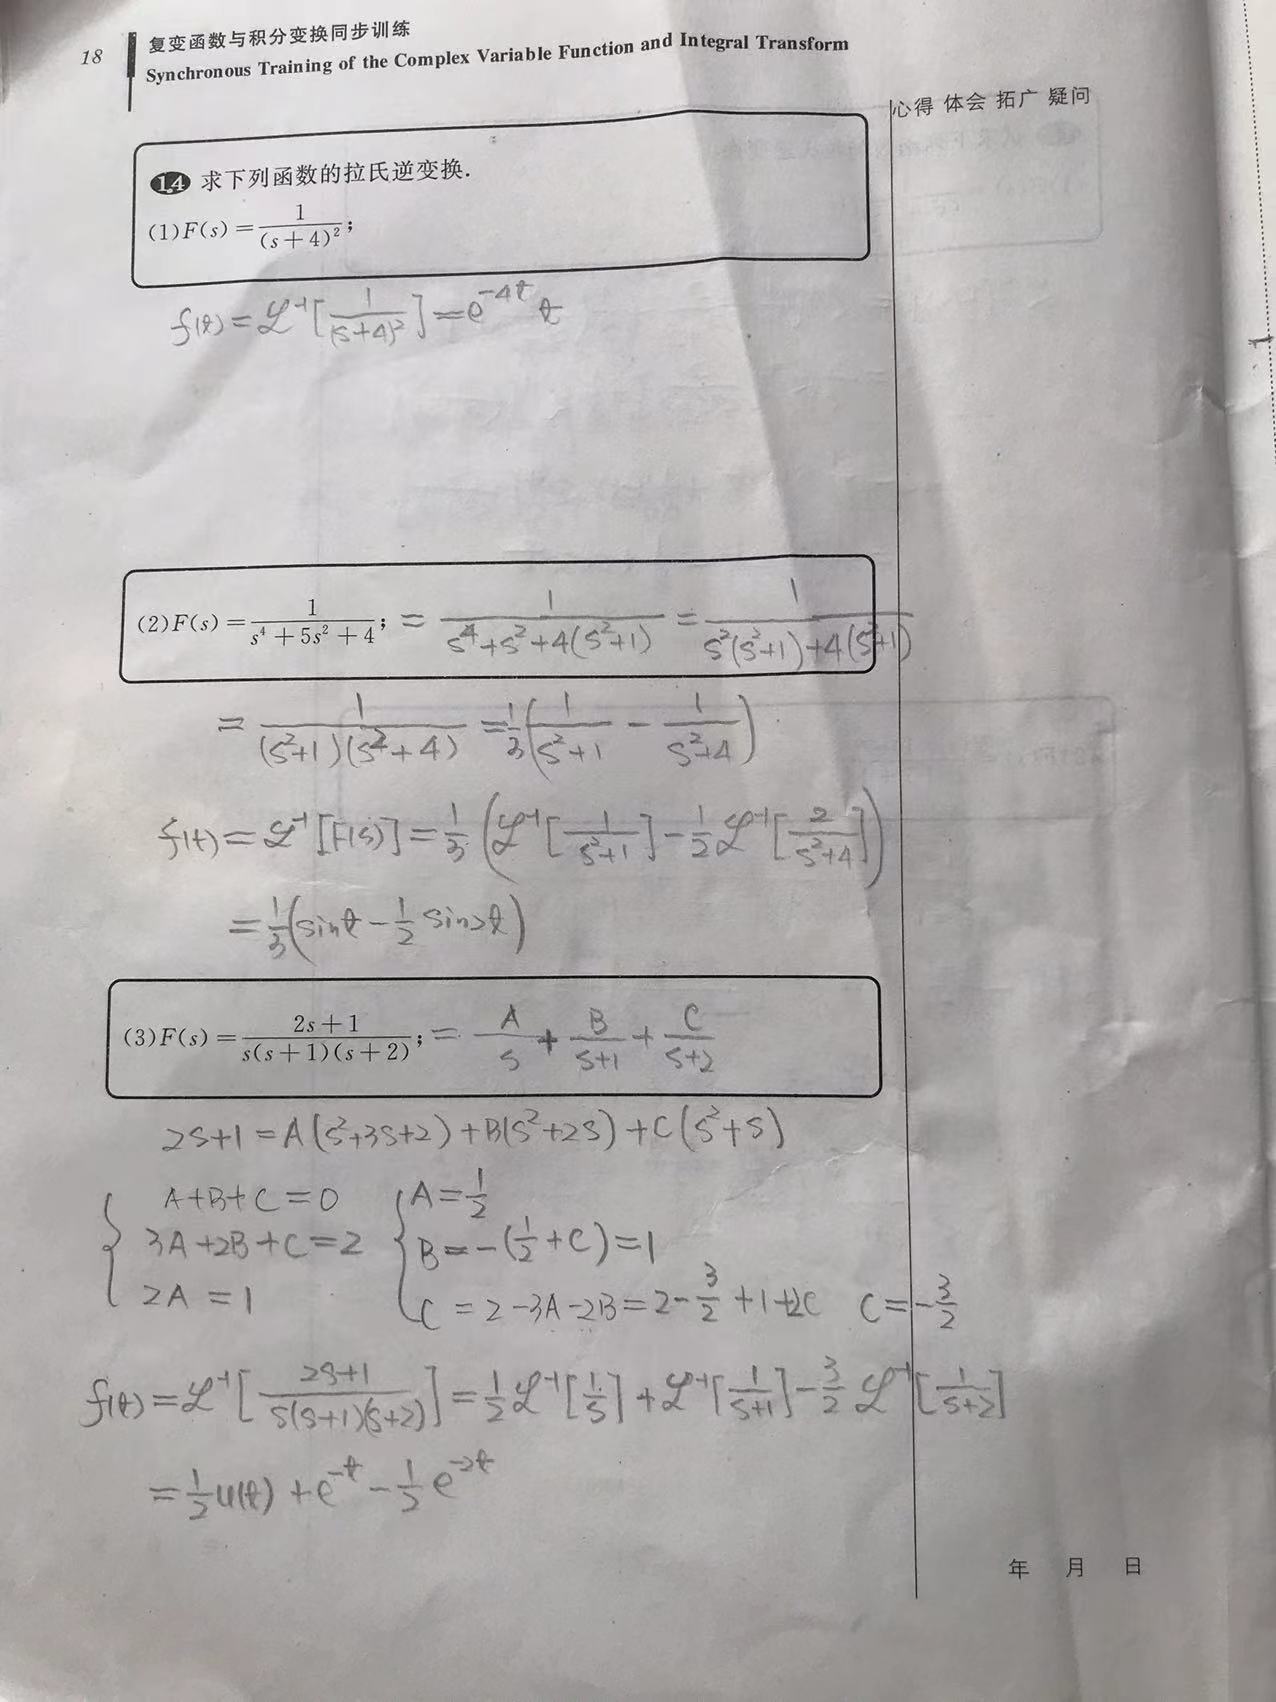 18
复变函数与积分变换同步训练
Synchronous Training of the Complex Variable Function and Integral Transform
心得 体会 拓广 疑问
1.4 求下列函数的拉氏逆变换.
(1)F(s)=1/(s+4)²;
f(t)=ℒ⁻¹[1/(s+4)²]=e⁻⁴ᵗt
(2)F(s)=1/(s⁴+5s²+4); = 1/(s⁴+s²+4(s²+1)) = 1/(s²(s²+1)+4(s²+1))
= 1/((s²+1)(s²+4)) = 1/3(1/(s²+1) - 1/(s²+4))
f(t)=ℒ⁻¹[F(s)]=1/3(ℒ⁻¹[1/(s²+1)]-1/2ℒ⁻¹[2/(s²+4)])
=1/3(sint-1/2 sin2t)
(3)F(s)=(2s+1)/(s(s+1)(s+2)); = A/s + B/(s+1) + C/(s+2)
2s+1=A(s²+3s+2)+B(s²+2s)+C(s²+s)
A+B+C=0 A=1/2
3A+2B+C=2 B=-(1/2+C)=1
2A=1 C=2-3A-2B=2-3/2+1+2C C=-3/2
f(t)=ℒ⁻¹[(2s+1)/(s(s+1)(s+2))]=1/2ℒ⁻¹[1/s]+ℒ⁻¹[1/(s+1)]-3/2ℒ⁻¹[1/(s+2)]
=1/2u(t)+e⁻ᵗ-1/2e⁻²ᵗ
年 月 日